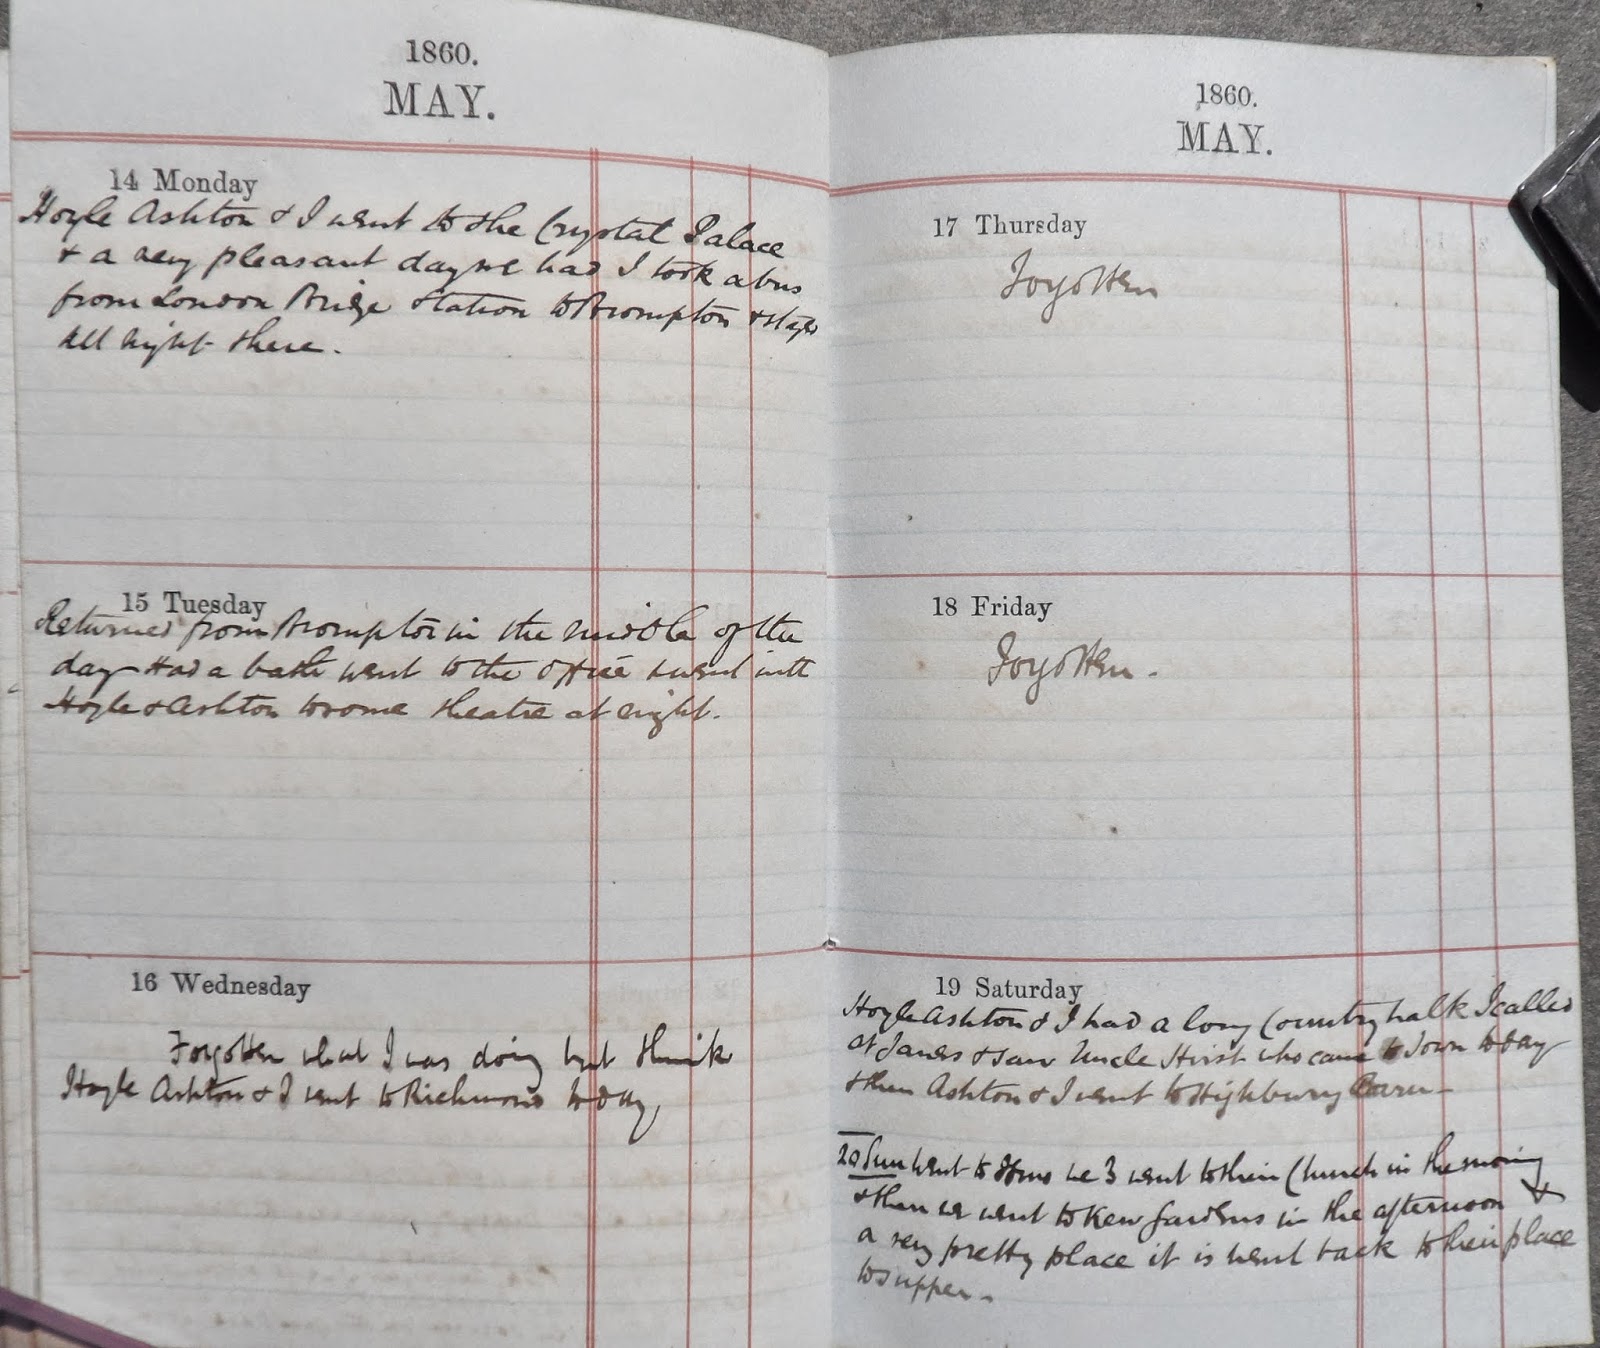 1860.
MAY.
14 Monday
Hoyle Ashton & I went to the Crystal Palace
& a very pleasant day we had I took a bus
from London Bridge Station to Brompton & stayed
all night there.
15 Tuesday
Returned from Brompton in the middle of the
day Had a bath went to the office & went with
Hoyle & Ashton to some theatre at night.
16 Wednesday
Forgotten what I was doing but think
Hoyle Ashton & I went to Richmond today
1860.
MAY.
17 Thursday
Forgotten
18 Friday
Forgotten.
19 Saturday
Hoyle Ashton & I had a long Country walk I called
at Janes & saw Uncle Hirst who came to Town today
then Ashton & I went to Highbury Barn -
20 Sun went to we 3 went to their Church in the morning
& then we went to Kew Gardens in the afternoon &
a very pretty place it is went back to their place
to supper -